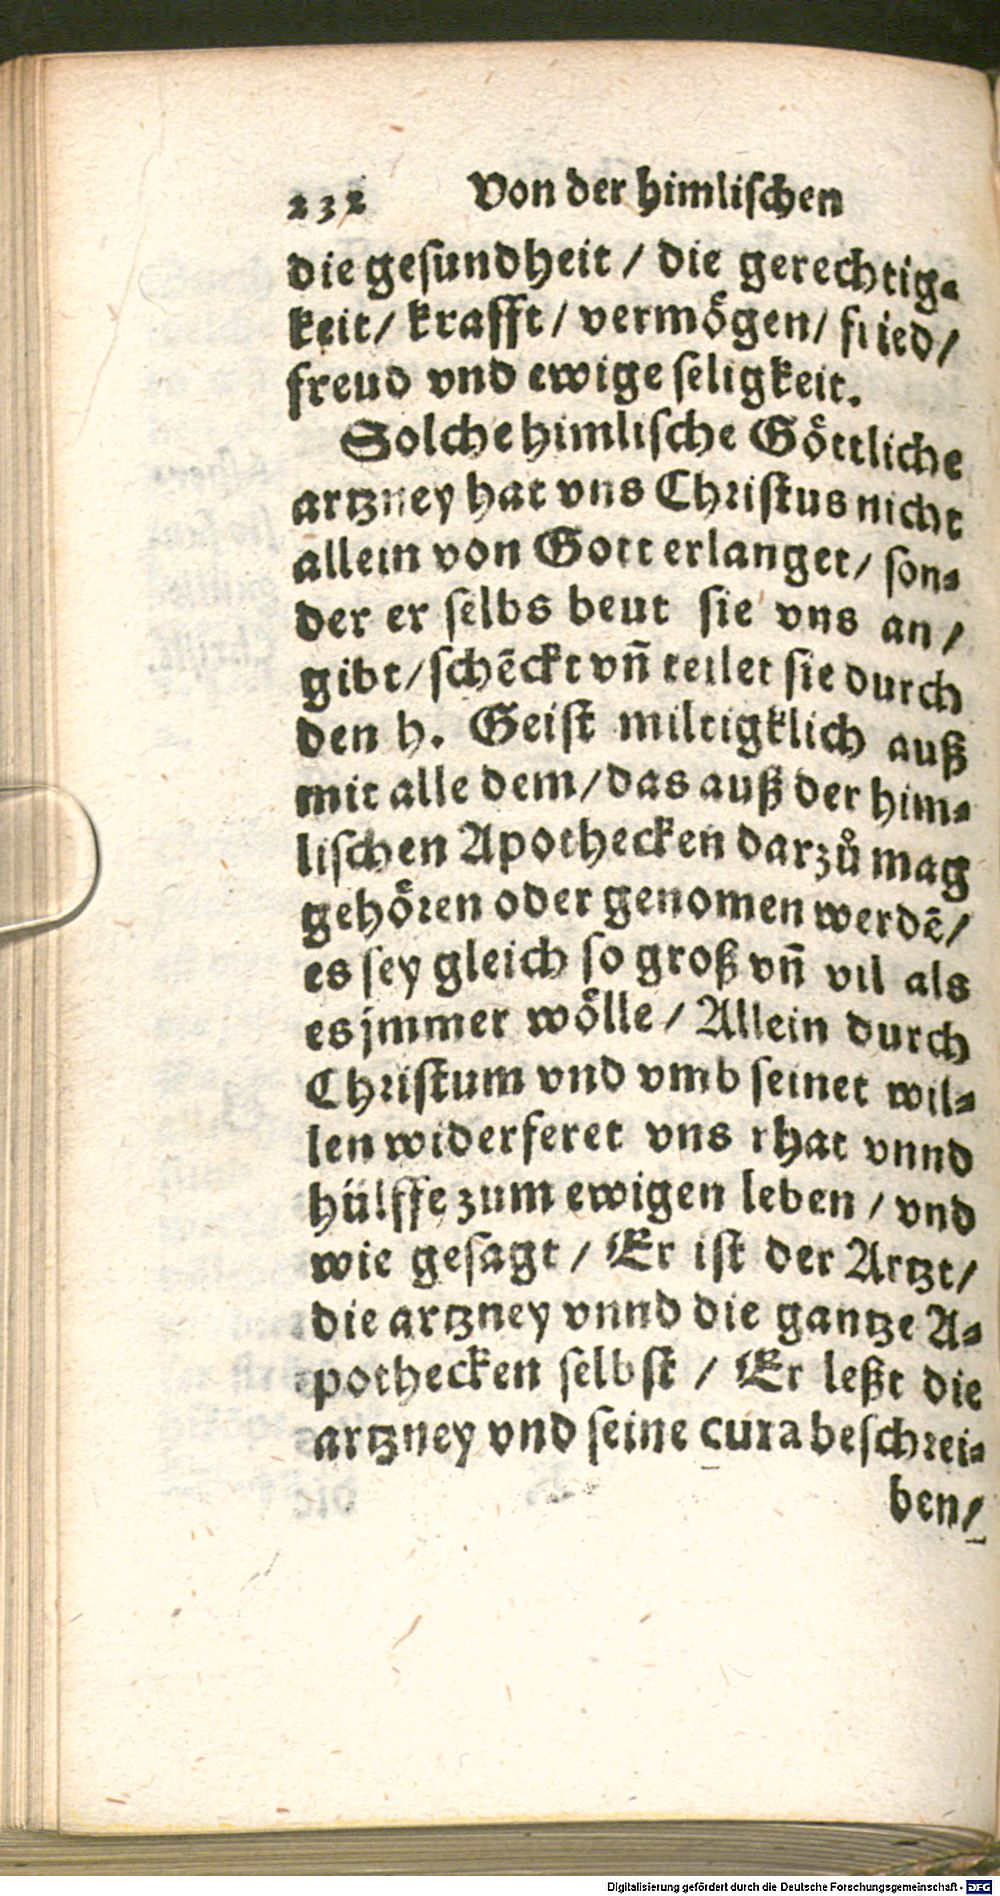 232 Von der himlischen
die gesundheit / die gerechtig-
keit / krafft / vermögen / fried /
freud vnd ewige seligkeit.
Solche himlische Göttliche
artzney hat vns Christus nicht
allein von Gott erlanget / son-
der er selbs beut sie vns an /
gibt / schẽckt vñ teilet sie durch
den h. Geist miltigklich auß
mit alle dem / das auß der him-
lischen Apothecken darzů mag
gehören oder genomen werdẽ /
es sey gleich so groß vñ vil als
es jmmer wölle / Allein durch
Christum vnd vmb seinet wil-
len widerferet vns rhat vnnd
hülffe zum ewigen leben / vnd
wie gesagt / Er ist der Artzt /
die artzney vnnd die gantze A-
pothecken selbst / Er leßt die
artzney vnd seine cura beschrei-
ben /
Digitalisierung gefördert durch die Deutsche Forschungsgemeinschaft - DFG